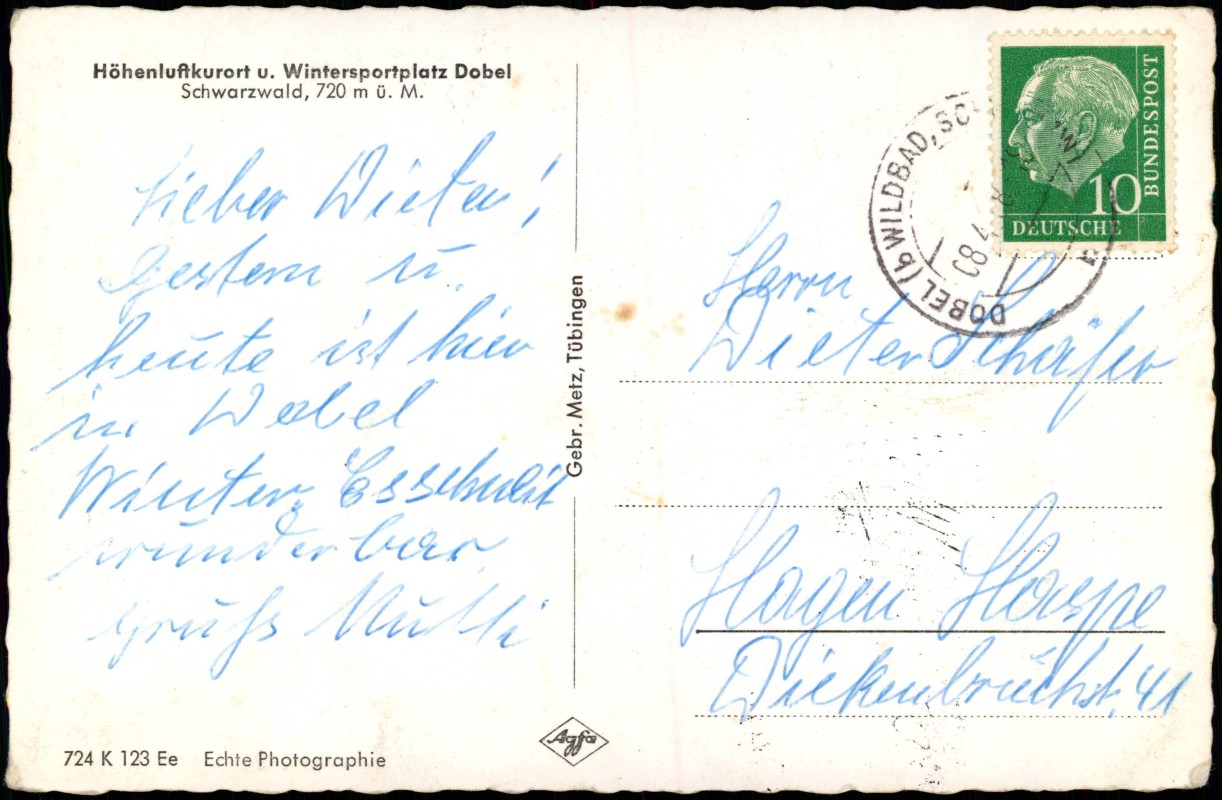 Höhenluftkurort u. Wintersportplatz Dobel
Schwarzwald, 720 m ü. M.
Lieber Dieter!
Gestern u.
heute ist hier
in Dobel
Winter. Es schneit
wunderbar.
Gruß Mutti
724 K 123 Ee Echte Photographie
Gebr. Metz, Tübingen
Agfa
DEUTSCHE
BUNDESPOST
10
DOBEL (b WILDBAD,
Herrn
Dieter Schäfer
Hagen Haspe
41